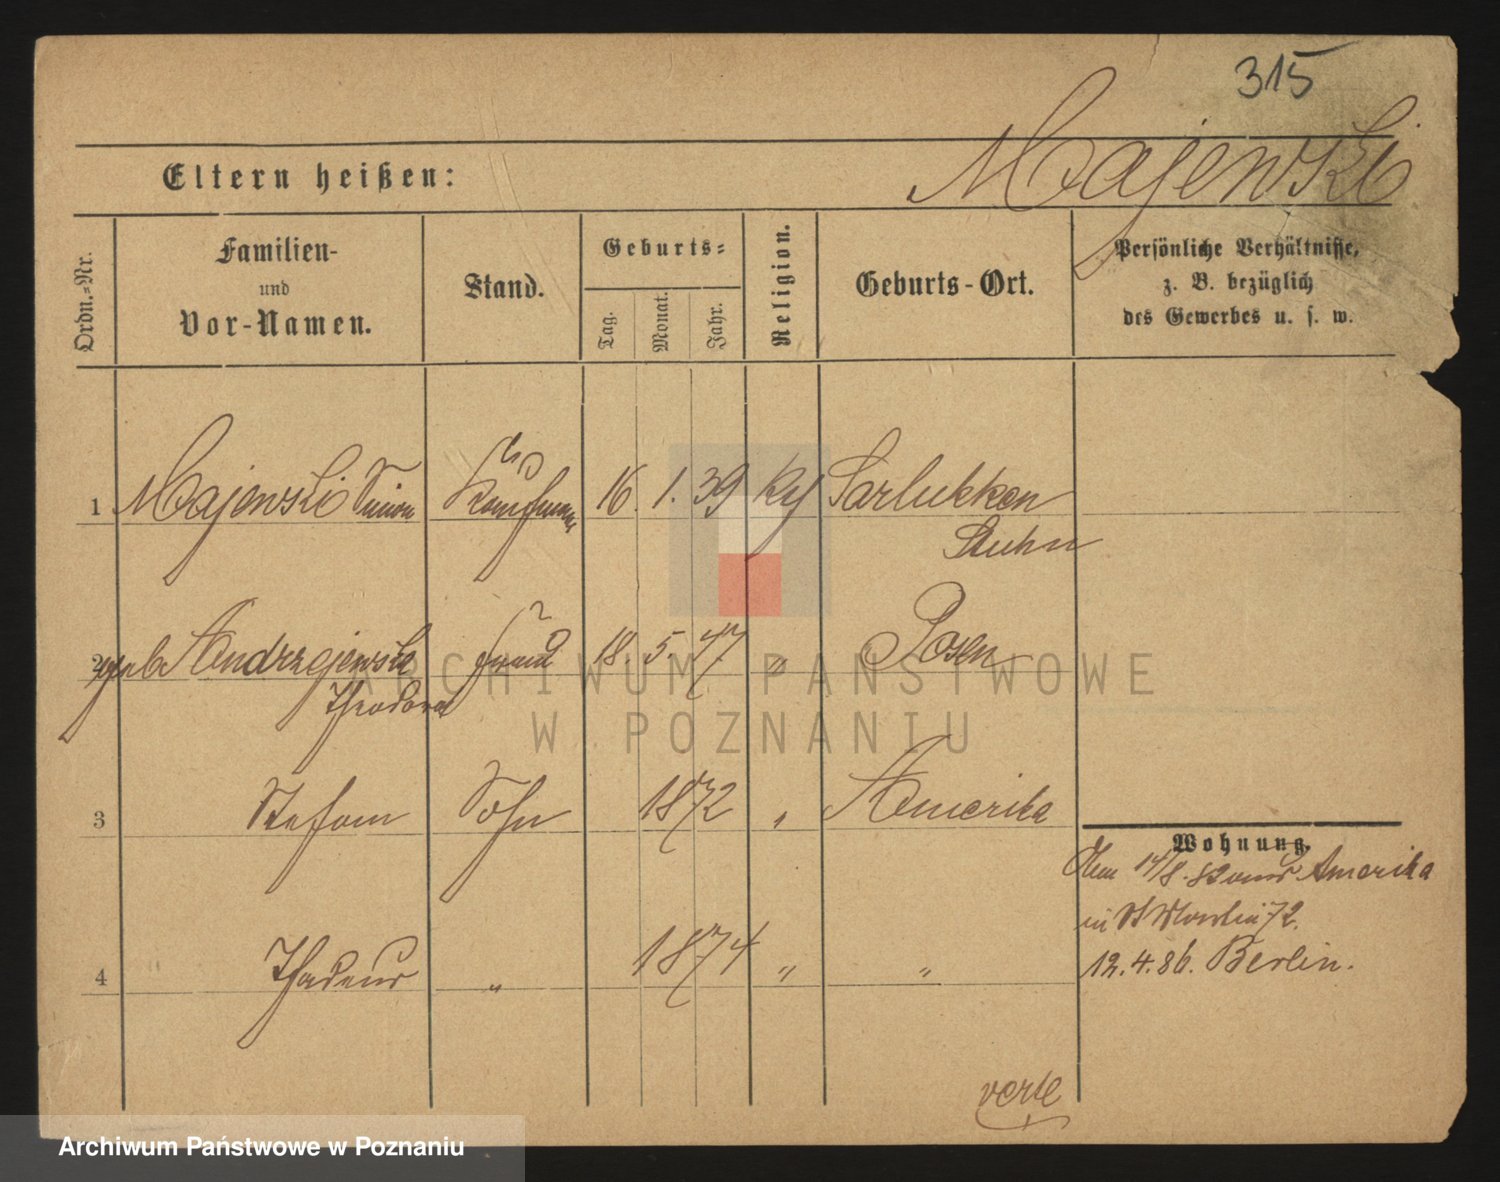 315
Majewski
Eltern heißen:
Ordn.=Nr.
Familien-
und
Vor-Namen.
Stand.
Geburts=
Tag.
Monat.
Jahr.
Religion.
Geburts-Ort.
Persönliche Verhältnisse,
z. B. bezüglich
des Gewerbes u. s. w.
1 Majewski Simon Kaufmann 16. 1. 39 Sarlukken
Stuhm
2 geb Andrzejewska Frau 18. 5. 47. " Posen
Theodora
3 Stefan Sohn 1872 " Amerika
Wohnung.
14/8. 82 aus Amerika
in St Martin 72.
12. 4. 86. Berlin.
4 Thadeus " 1874 " "
verte
ARCHIWUM PAŃSTWOWE
W POZNANIU
Archiwum Państwowe w Poznaniu